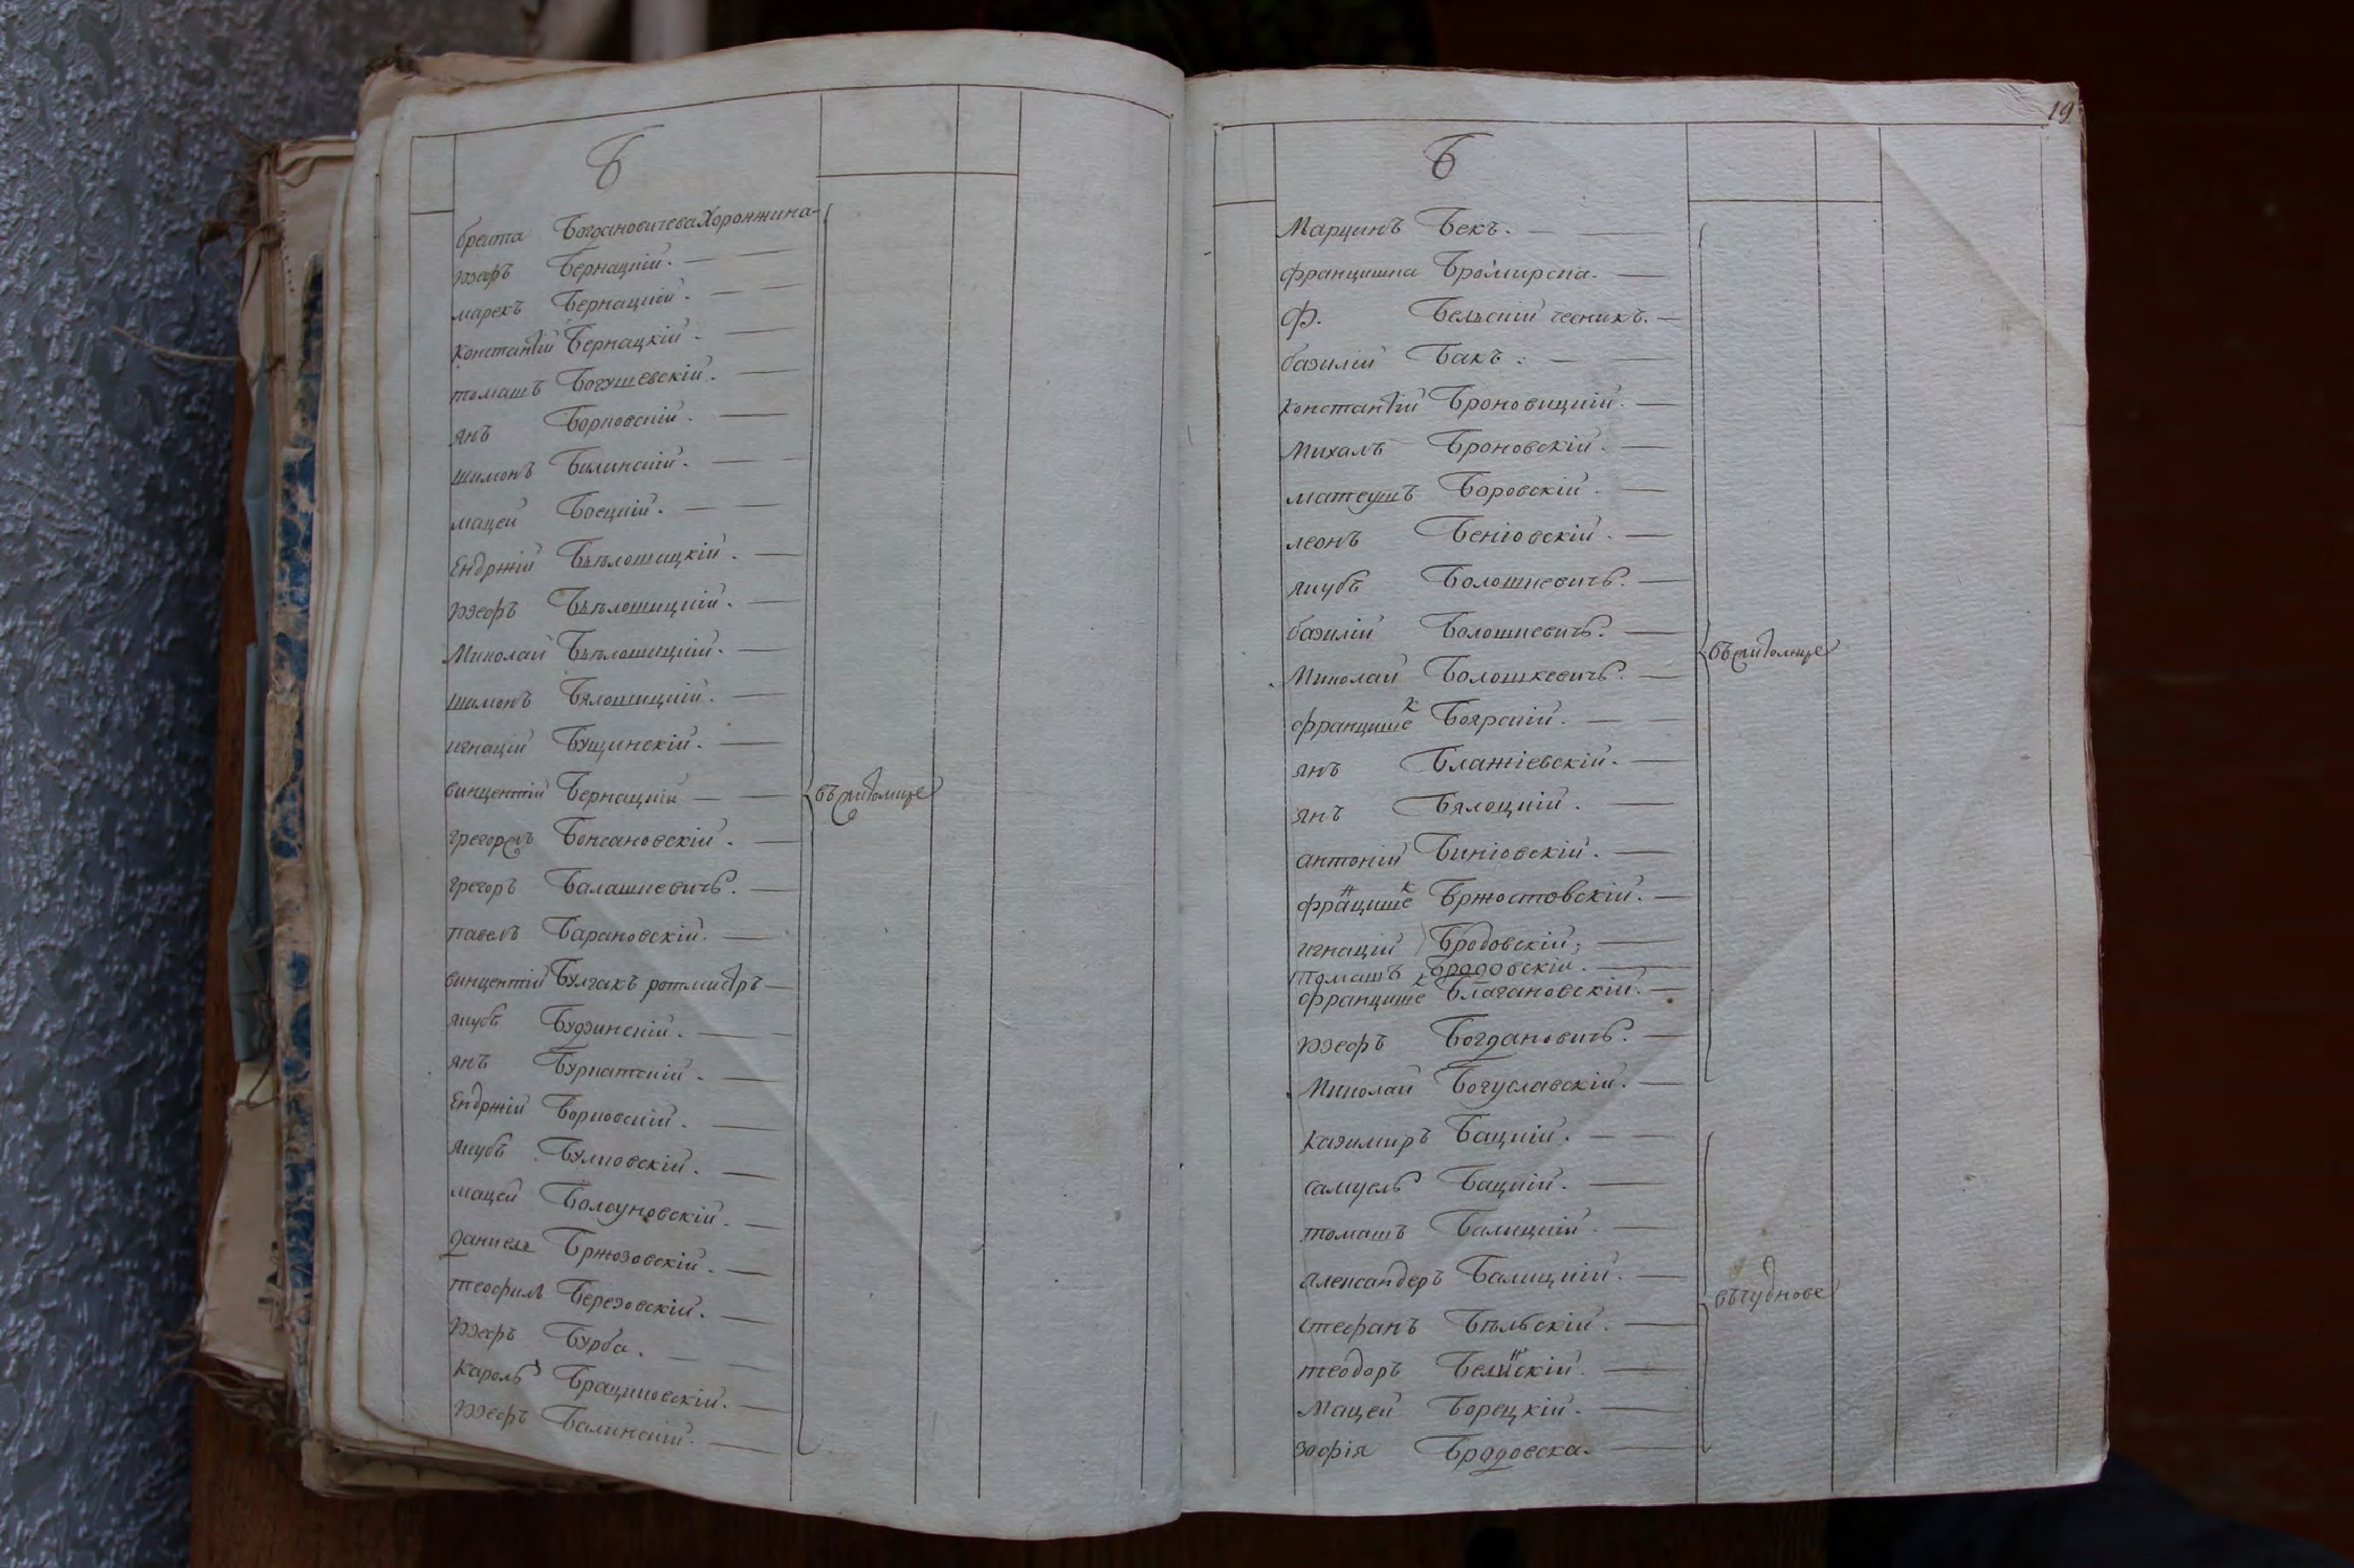 Б
брата Богдановичева Хоронжина
юзефъ Бернацкій.
марекъ Бернацкій.
Константій Бернацкій.
томашъ Богушевскій.
янъ Борковскій.
шимонъ Билинскій.
мацей Боецкій.
Ендржій Бѣлошицкій.
юзефъ Бѣлошицкій.
Миколай Бѣлошицкій.
шимонъ Бялошицкій.
игнацій Бущинскій.
винцентій Бернацкій
грегоръ Боксановскій.
грегоръ Балашкевичъ.
павелъ Барановскій.
винцентій Булгакъ ротмистръ
якубъ Будзинскій.
янъ Буркатскій.
Ендржій Борковскій.
якубъ Булковскій.
мацей Болсуновскій.
даниель Бржозовскій.
теофиль Березовскій.
юзефъ Бурба.
Кароль Брацковскій.
юзефъ Балинскій.
въ житомире
19
Б
Марцинъ Бекъ.
францишка Бромирска.
Ф. Бельскій чесникъ.
базилій Бакъ.
Константій Броновицкій.
Михалъ Броновскій.
матеушъ Боровскій.
леонъ Беніовскій.
якубъ Болошкевичъ.
базилій Болошкевичъ.
Миколай Болошкевичъ.
францишек Боярскій.
янъ Блажіевскій.
янъ Бялоцкій.
антоній Биніовскій.
францишек Бржостовскій.
игнацій Бродовскій;
Томашъ Бродовскій.
францишек Благановскій.
юзефъ Богдановичъ.
Миколай Богуславскій.
въ житомире
Казимиръ Бацкій.
самуель Бацкій.
томашъ Балицкій.
александеръ Балицкій.
стефанъ Бѣльскій.
теодоръ Белинскій.
Мацей Борецкій.
зофія Бродовска.
въ чуднове